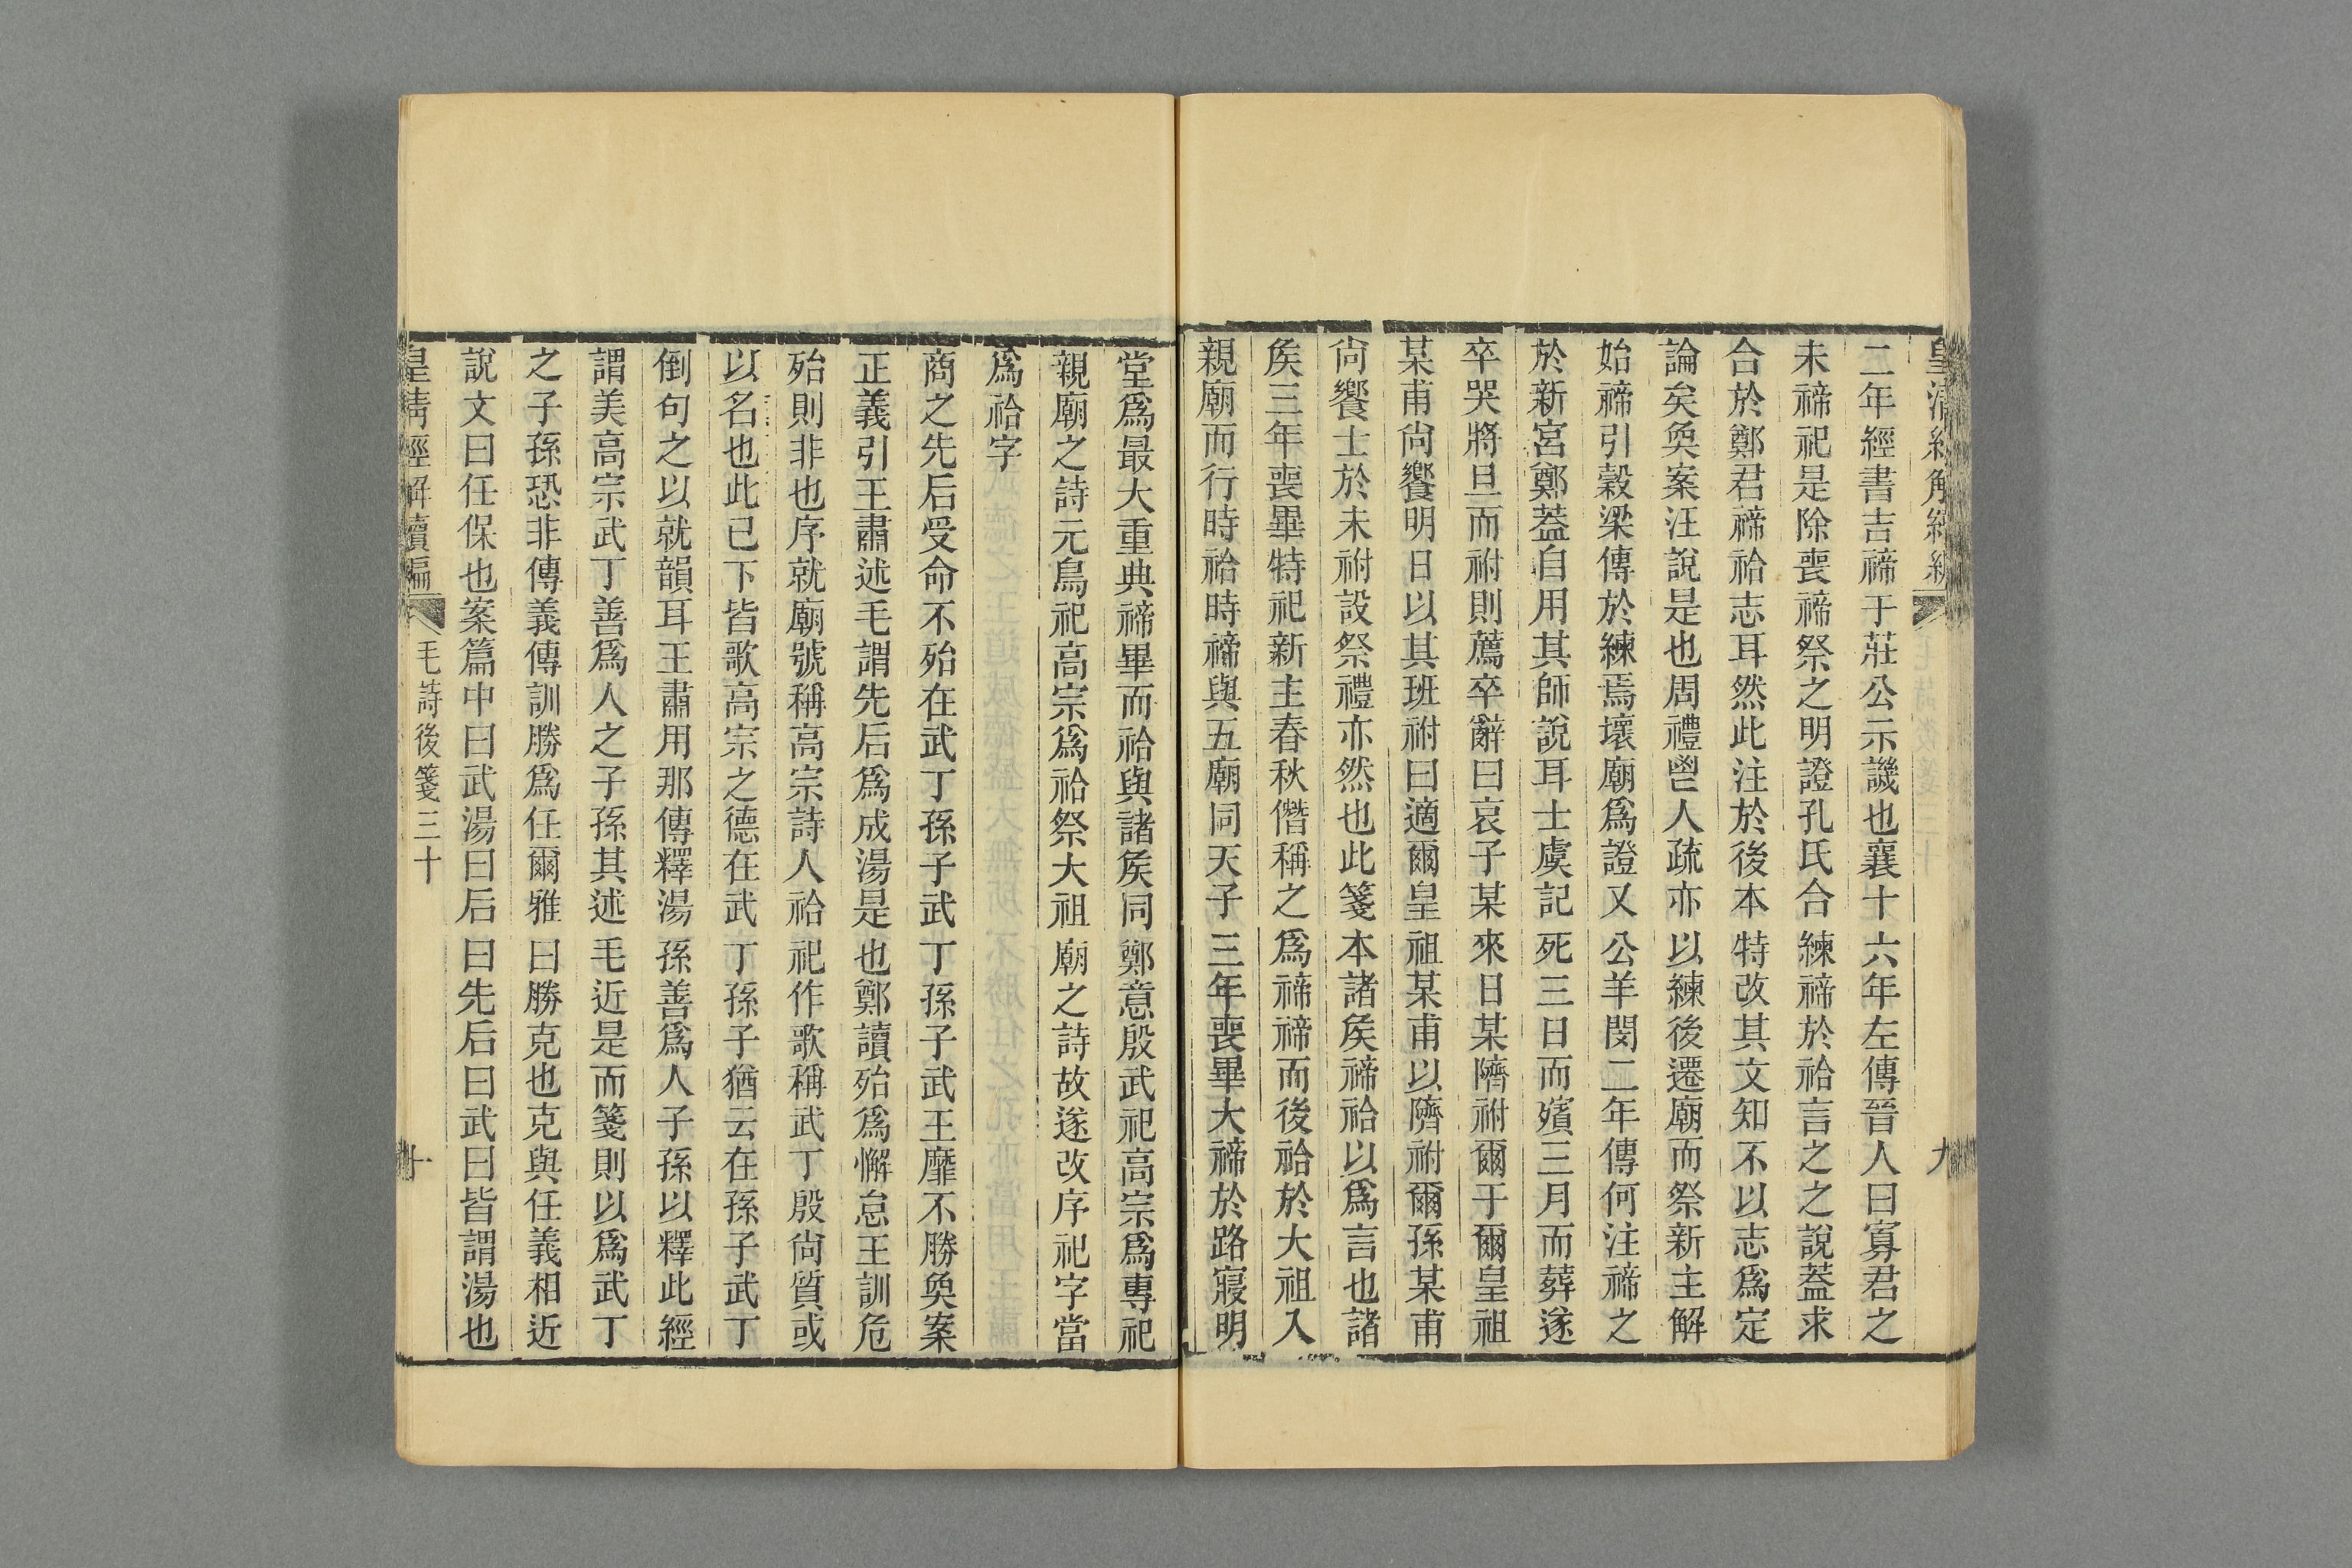 皇清經解續編
九
二年經書吉禘于莊公示譏也襄十六年左傳晉人曰寡君之
未禘祀是除喪禘祭之明證孔氏合練禘於祫言之之說蓋求
合於鄭君禘祫志耳然此注於後本特改其文知不以志爲定
論矣奐案汪說是也周禮鬯人疏亦以練後遷廟而祭新主解
始禘引穀梁傳於練焉壞廟爲證又公羊閔二年傳何注禘之
於新宮鄭葢自用其師說耳士虞記死三日而殯三月而葬遂
卒哭將旦而祔則薦卒辭曰哀子某來日某隮祔爾于爾皇祖
某甫尙饗明日以其班祔曰適爾皇祖某甫以隮祔爾孫某甫
尙饗士於未祔設祭禮亦然也此箋本諸矦禘祫以爲言也諸
矦三年喪畢特祀新主春秋僭稱之爲禘禘而後祫於大祖入
親廟而行時祫時禘與五廟同天子三年喪畢大禘於路寢明
堂爲最大重典禘畢而祫與諸矦同鄭意殷武祀高宗爲專祀
親廟之詩元鳥祀高宗爲祫祭大祖廟之詩故遂改序祀字當
爲祫字
商之先后受命不殆在武丁孫子武丁孫子武王靡不勝奐案
正義引王肅述毛謂先后爲成湯是也鄭讀殆爲懈怠王訓危
殆則非也序就廟號稱高宗詩人祫祀作歌稱武丁殷尙質或
以名也此已下皆歌高宗之德在武丁孫子猶云在孫子武丁
倒句之以就韻耳王肅用那傳釋湯孫善爲人子孫以釋此經
謂美高宗武丁善爲人之子孫其述毛近是而箋則以爲武丁
之子孫恐非傳義傳訓勝爲任爾雅曰勝克也克與任義相近
說文曰任保也案篇中曰武湯曰后曰先后曰武曰皆謂湯也
皇清經解續編
毛詩後箋三十
十